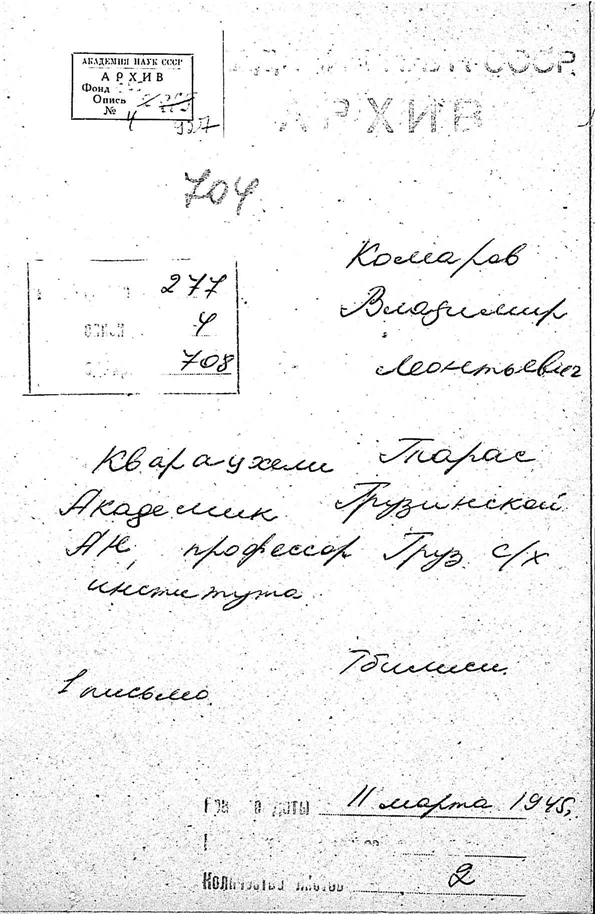 АКАДЕМИЯ НАУК СССР
АРХИВ
Фонд
Опись
№ 4
927
СССР
АРХИВ
704
277
4
708
Комаров
Владимир
Леонтьевич
Кварацхели Тарас
Академик Грузинской
АН, профессор Груз. с/х
института
Тбилиси.
1 письмо.
даты 11 марта 1945г.
Количество листов 2